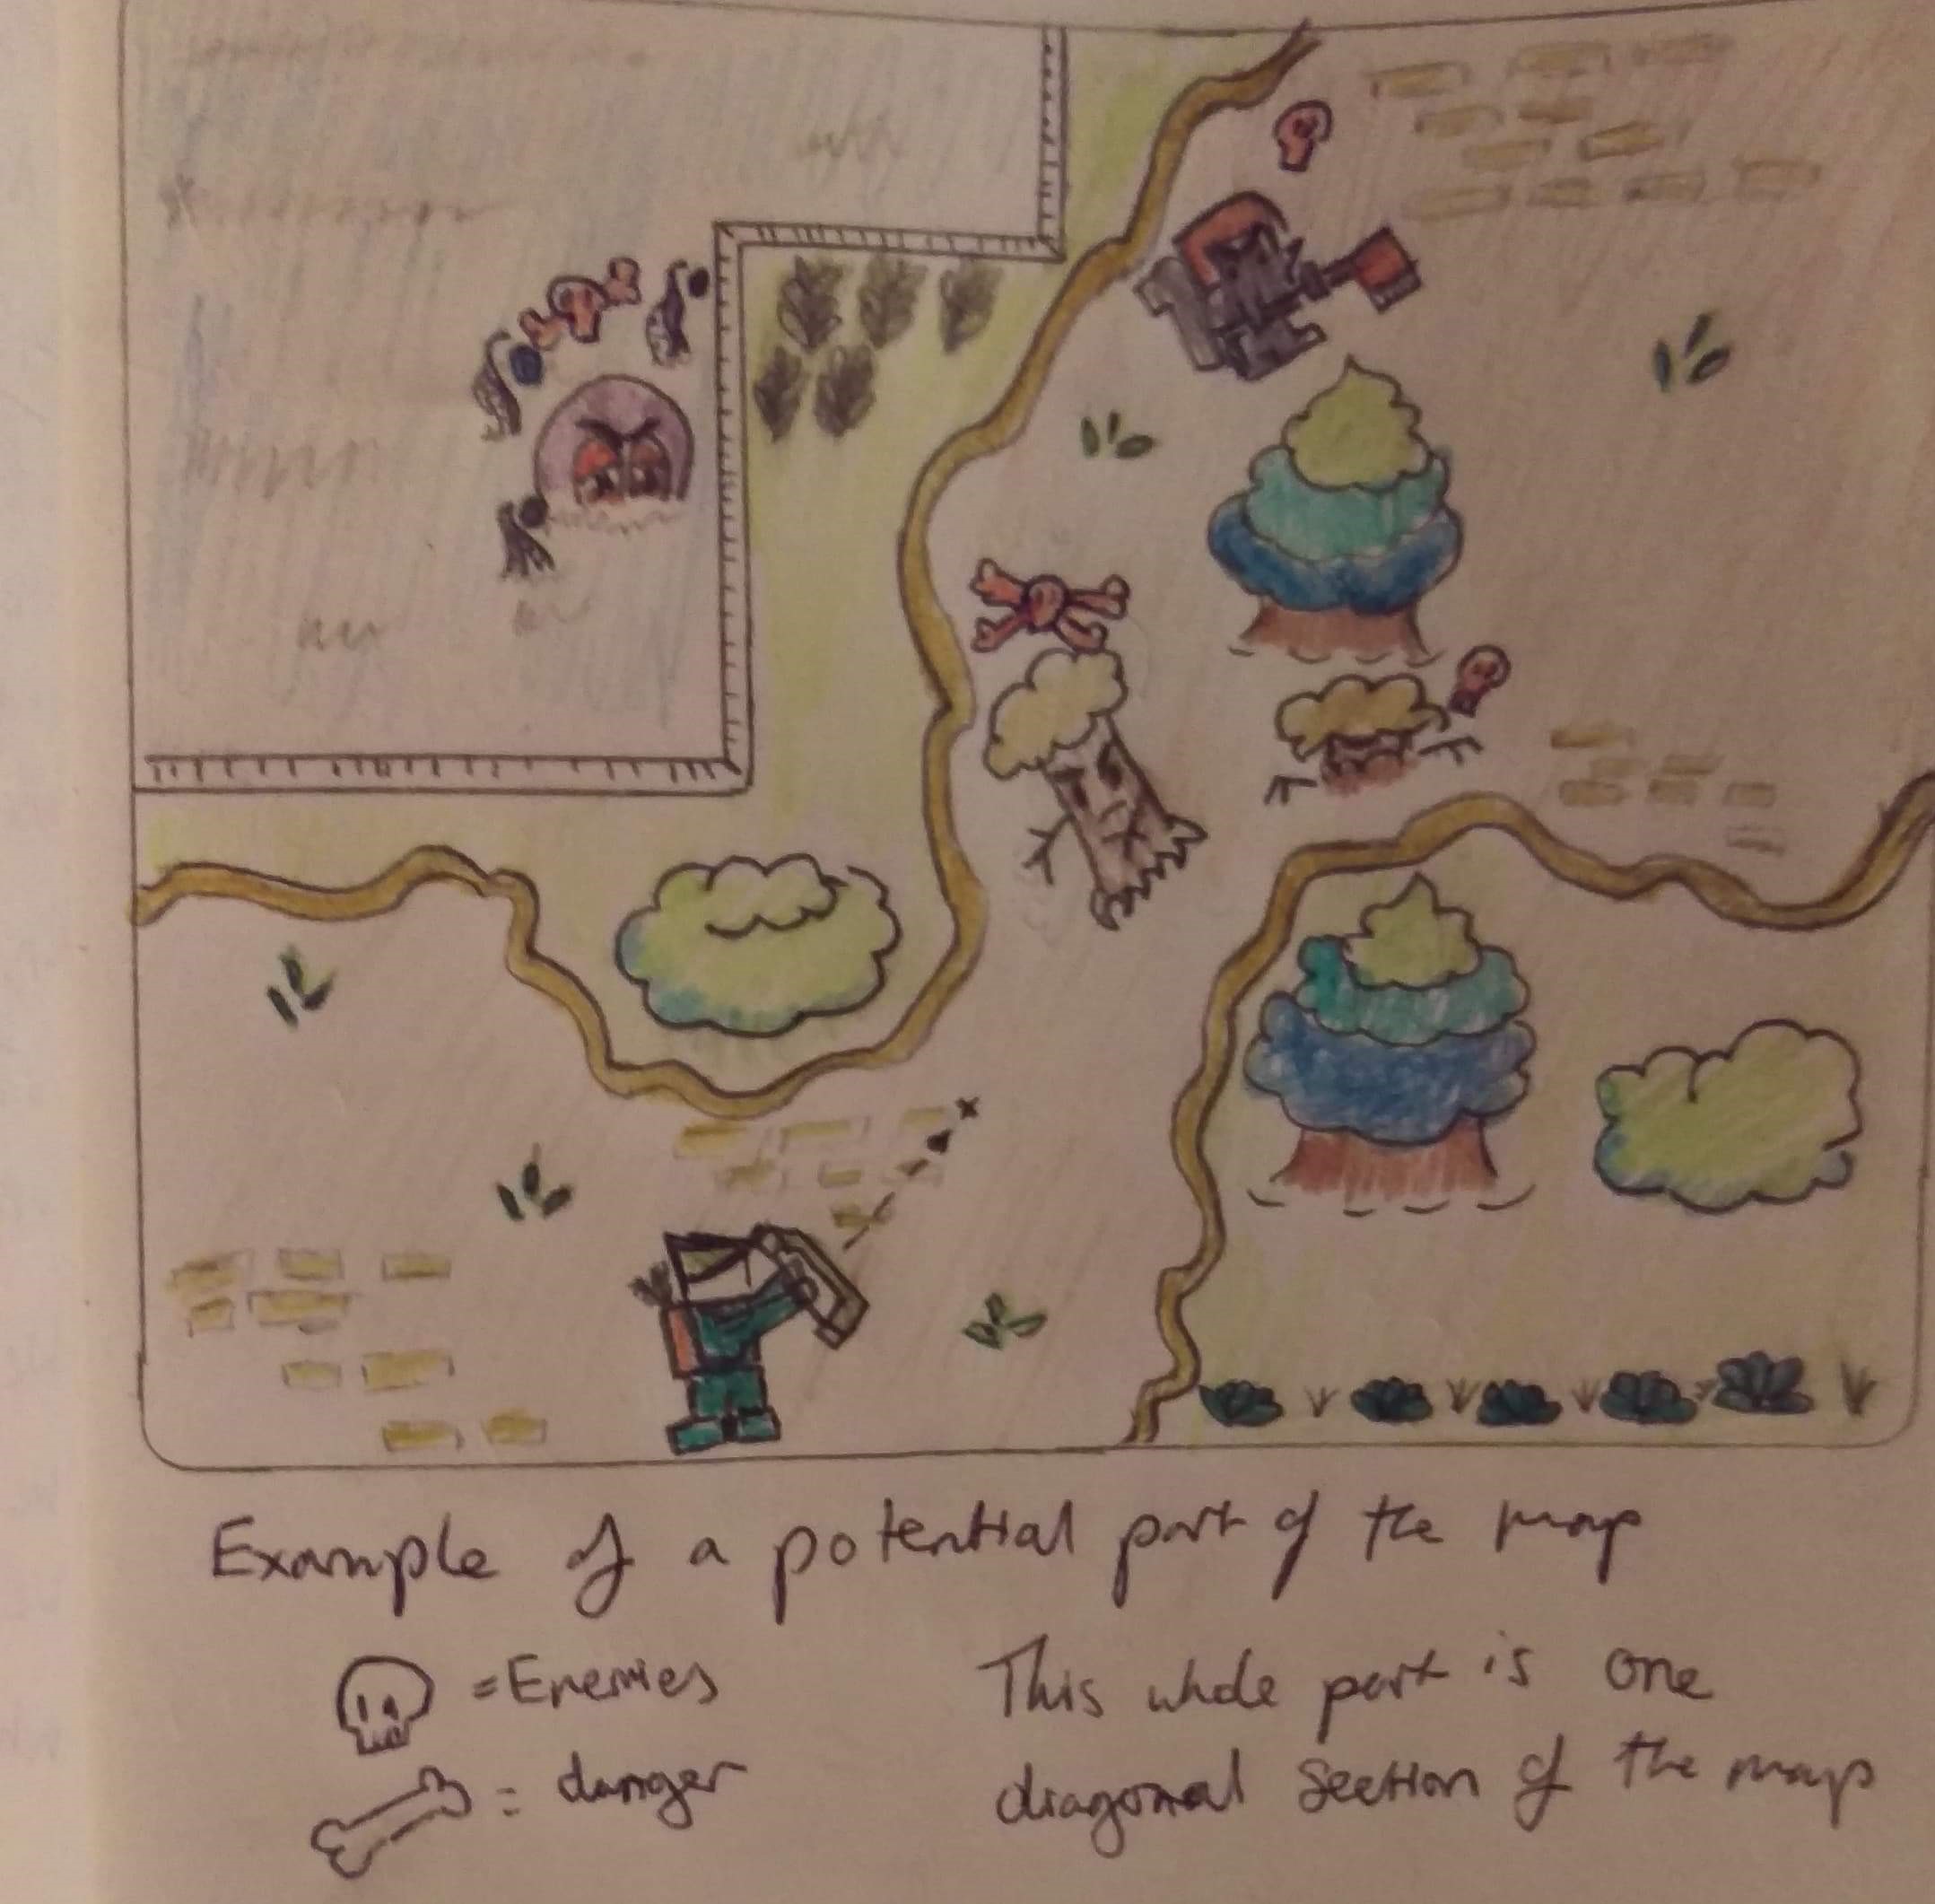 Example of a potential part of the map
= Enemies
= danger
This whole part is one
diagonal section of the map